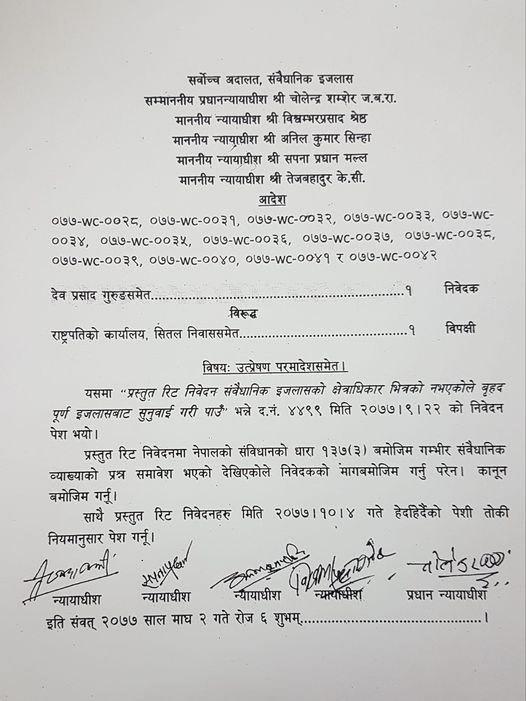 सर्वोच्च अदालत, संवैधानिक इजलास
सम्माननीय प्रधानन्यायाधीश श्री चोलेन्द्र शम्शेर ज.ब.रा.
माननीय न्यायाधीश श्री विश्वम्भरप्रसाद श्रेष्ठ
माननीय न्यायाधीश श्री अनिल कुमार सिन्हा
माननीय न्यायाधीश श्री सपना प्रधान मल्ल
माननीय न्यायाधीश श्री तेजबहादुर के.सी.
आदेश
०७७-WC-००२८, ०७७-WC-००३१, ०७७-WC-००३२, ०७७-WC-००३३, ०७७-WC-
००३४, ०७७-WC-००३५, ०७७-WC-००३६, ०७७-WC-००३७, ०७७-WC-००३८,
०७७-WC-००३९, ०७७-WC-००४०, ०७७-WC-००४१ र ०७७-WC-००४२
देव प्रसाद गुरुङसमेत..........................................................१ निवेदक
विरूद्ध
राष्ट्रपतिको कार्यालय, सितल निवाससमेत......................................१ विपक्षी
विषयः उत्प्रेषण परमादेशसमेत।
यसमा "प्रस्तुत रिट निवेदन संवैधानिक इजलासको क्षेत्राधिकार भित्रको नभएकोले बृहद
पूर्ण इजलासबाट सुनुवाई गरी पाउँ" भन्ने द.नं. ४४९९ मिति २०७७।९।२२ को निवेदन
पेश भयो।
प्रस्तुत रिट निवेदनमा नेपालको संविधानको धारा १३७(३) बमोजिम गम्भीर संवैधानिक
व्याख्याको प्रश्न समावेश भएको देखिएकोले निवेदकको मागबमोजिम गर्नु परेन। कानून
बमोजिम गर्नू।
साथै प्रस्तुत रिट निवेदनहरु मिति २०७७।१०।४ गते हेर्दाहेर्दैको पेशी तोकी
नियमानुसार पेश गर्नू।
न्यायाधीश न्यायाधीश न्यायाधीश न्यायाधीश प्रधान न्यायाधीश
इति संवत् २०७७ साल माघ २ गते रोज ६ शुभम्..........................................।